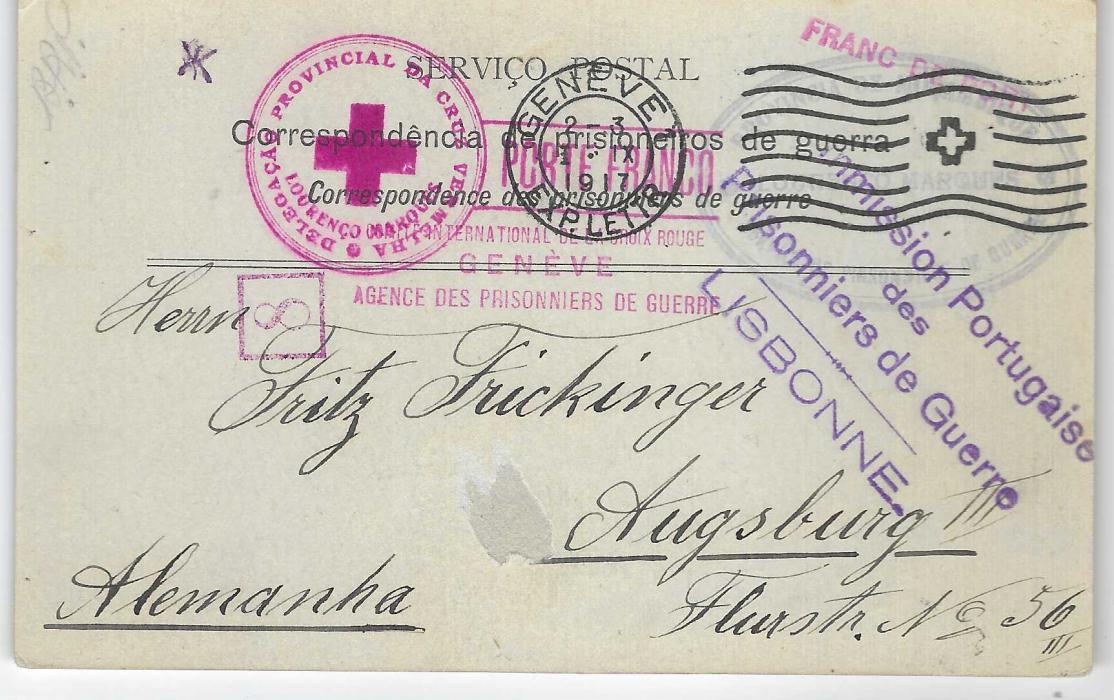 FRANC DE PORT
SERVIÇO POSTAL
Correspondência de prisioneiros de guerra
Correspondence des prisonniers de guerre
DELEGAÇÃO PROVINCIAL DA CRUZ VERMELHA
LOURENÇO MARQUES
GENÈVE
2-3
1 IX
1917
EXP. LETTR.
PORTE FRANCO
COMITÉ INTERNATIONAL DE LA CROIX ROUGE
GENÈVE
AGENCE DES PRISONNIERS DE GUERRE
LOURENÇO MARQUES
Commission Portugaise
des
Prisonniers de Guerre
LISBONNE.
8
Herrn
Fritz Frickinger
Augsburg III
Alemanha
Flurstr. No 56
III